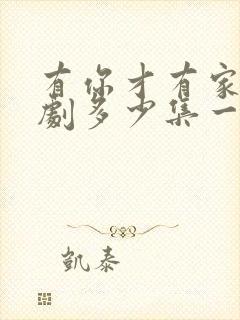 有你才有家
劇多少集一
凱泰